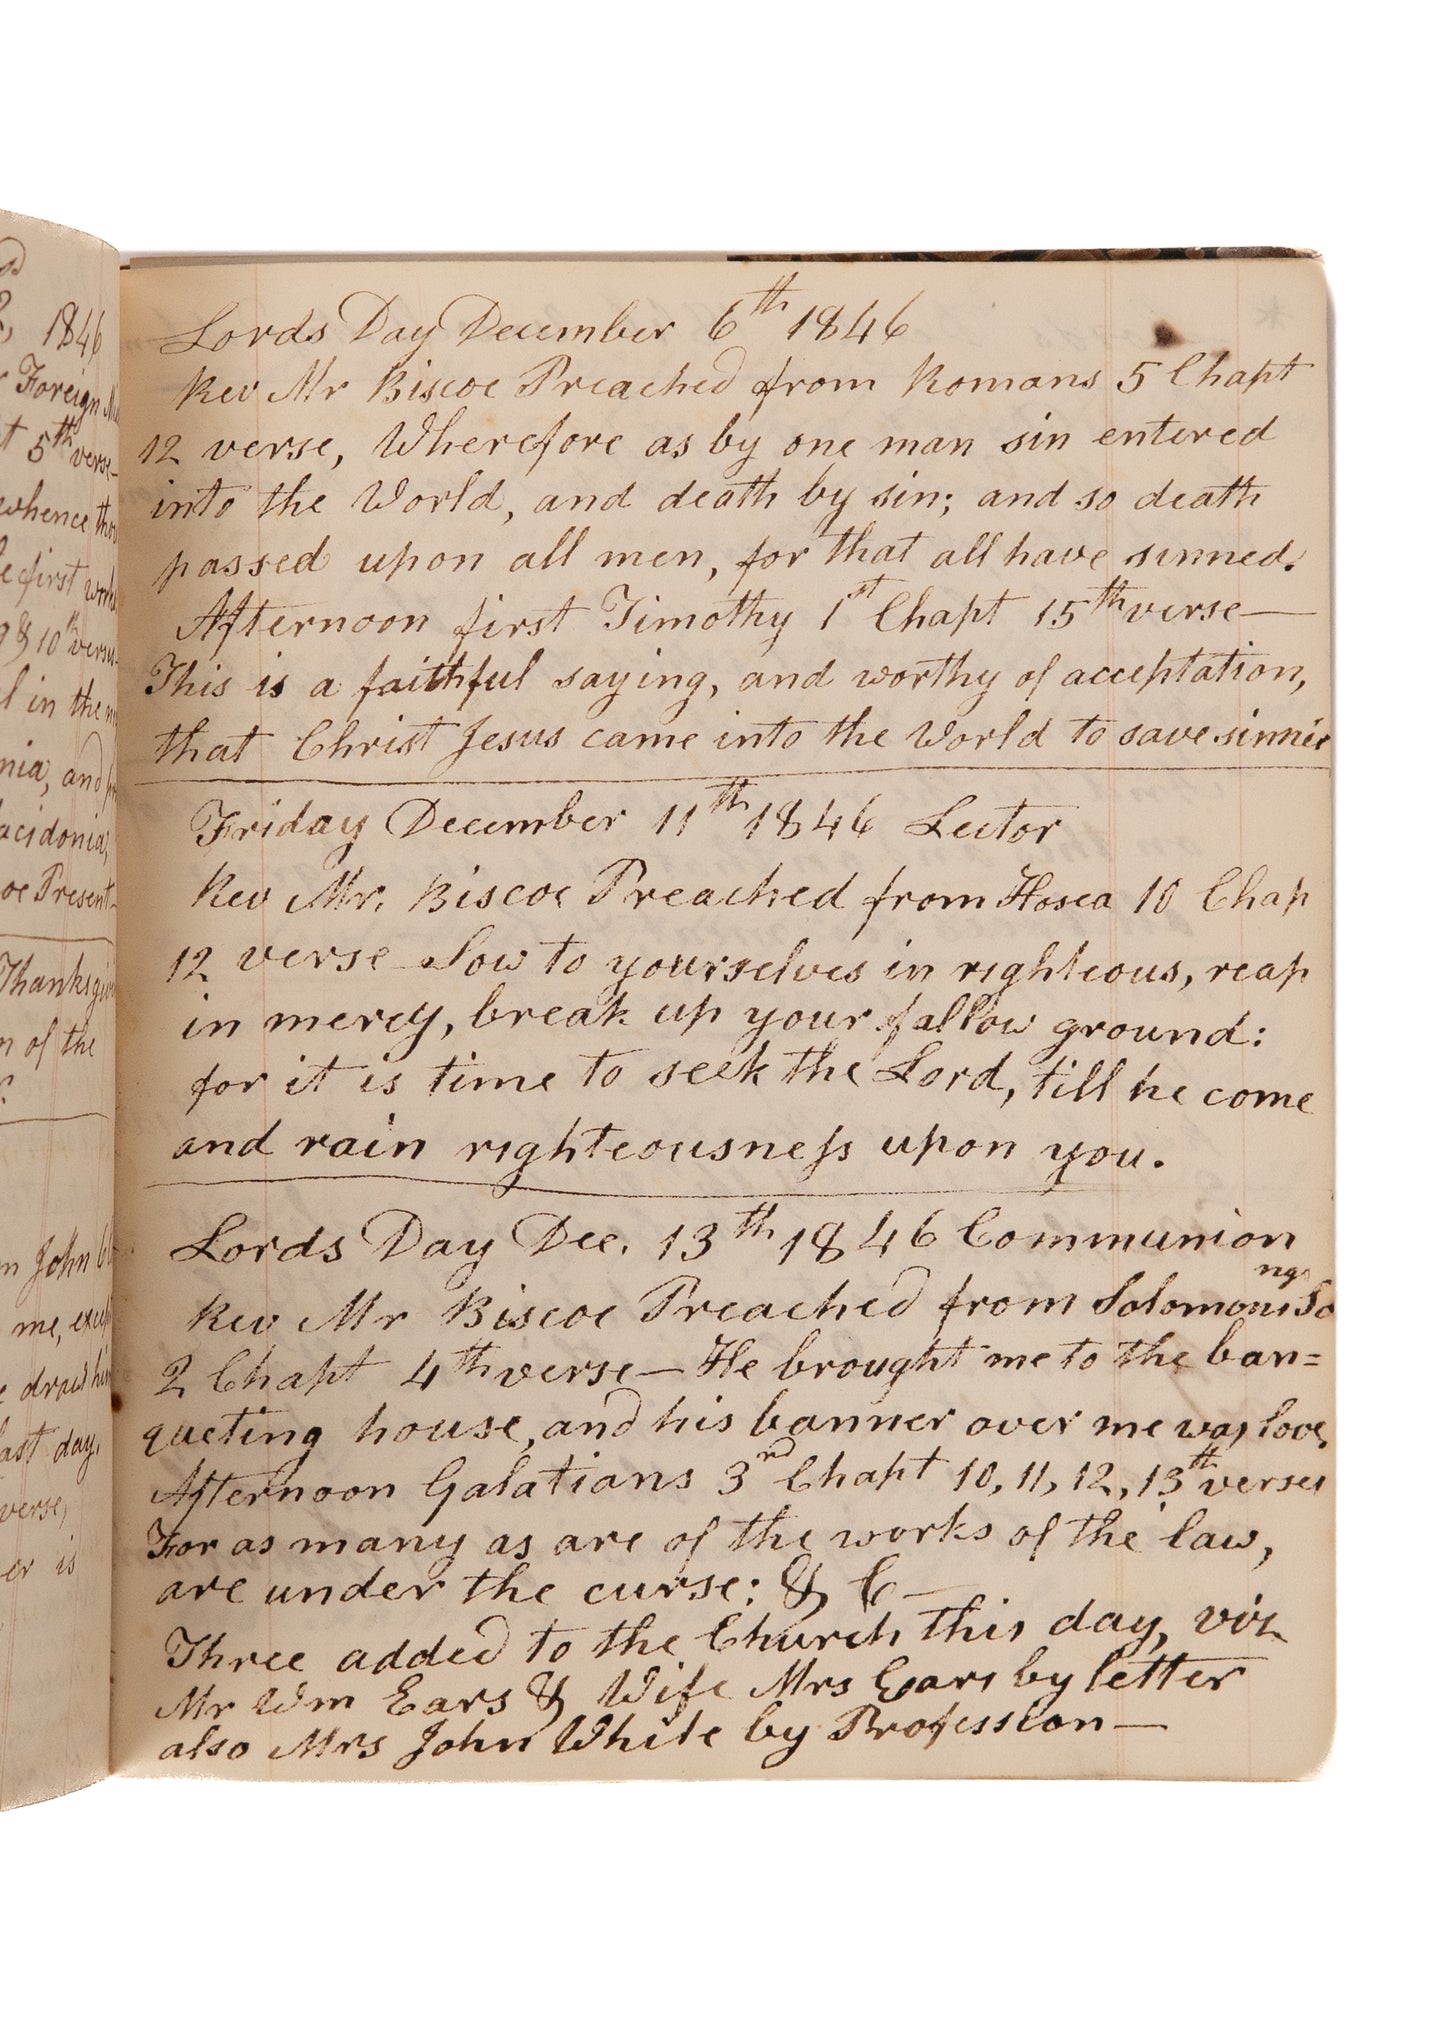 1846
Foreign
5th verse
whence thou
first works
& 10th verses
l in the
nia, and
acidonia,
oe Present
Thanksgiv
n of the
n John 6
me, except
draw him
last day.
verse,
er is
Lords Day December 6th 1846
Rev Mr Biscoe Preached from Romans 5 Chapt
12 verse, Wherefore as by one man sin entered
into the World, and death by sin; and so death
passed upon all men, for that all have sinned.
Afternoon first Timothy 1st Chapt 15th verse—
This is a faithful saying, and worthy of acceptation,
that Christ Jesus came into the World to save sinners
Friday December 11th 1846 Lector
Rev Mr. Biscoe Preached from Hosea 10 Chap
12 verse Sow to yourselves in righteous, reap
in mercy, break up your fallow ground:
for it is time to seek the Lord, till he come
and rain righteousness upon you.
Lords Day Dec. 13th 1846 Communion
Rev Mr Biscoe Preached from Solomons Songs
2 Chapt 4th verse— He brought me to the ban=
queting house, and his banner over me was love.
Afternoon Galatians 3rd Chapt 10, 11, 12, 13th verses
For as many as are of the works of the law,
are under the curse: & C—
Three added to the Church this day, viz
Mr Wm Ears & Wife Mrs Ears by letter
also Mrs John White by Profession—